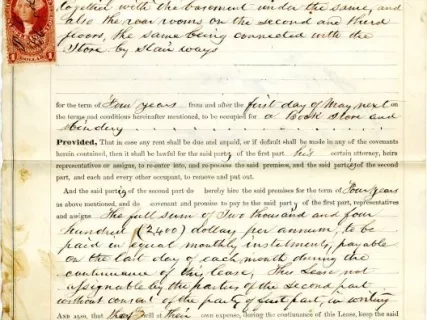 together with the basement under the same, and
also the rear rooms on the second and third
floors, the same being connected with the
Store by Stair ways
for the term of Four years from and after the first day of May next on
the terms and conditions hereinafter mentioned, to be occupied for a Book Store and
Bindery
Provided, That in case any rent shall be due and unpaid, or if default shall be made in any of the covenants
herein contained, then it shall be lawful for the said party of the first part his certain attorney, heirs
representatives or assigns, to re-enter into, and re-possess the said premises, and the said parties of the second
part, and each and every other occupant, to remove and put out.
And the said parties of the second part do hereby hire the said premises for the term of Four years
as above mentioned, and do covenant and promise to pay to the said party of the first part, representatives
and assigns The full sum of Two thousand and four
hundred (2,400) dollars per annum, to be
paid in equal monthly instalments, payable
on the last day of each month during the
continuance of this lease, This Lease not
assignable by the parties of the second part
without consent of the party of first part, in writing
And also, that they will at Their own expense, during the continuance of this Lease, keep the said